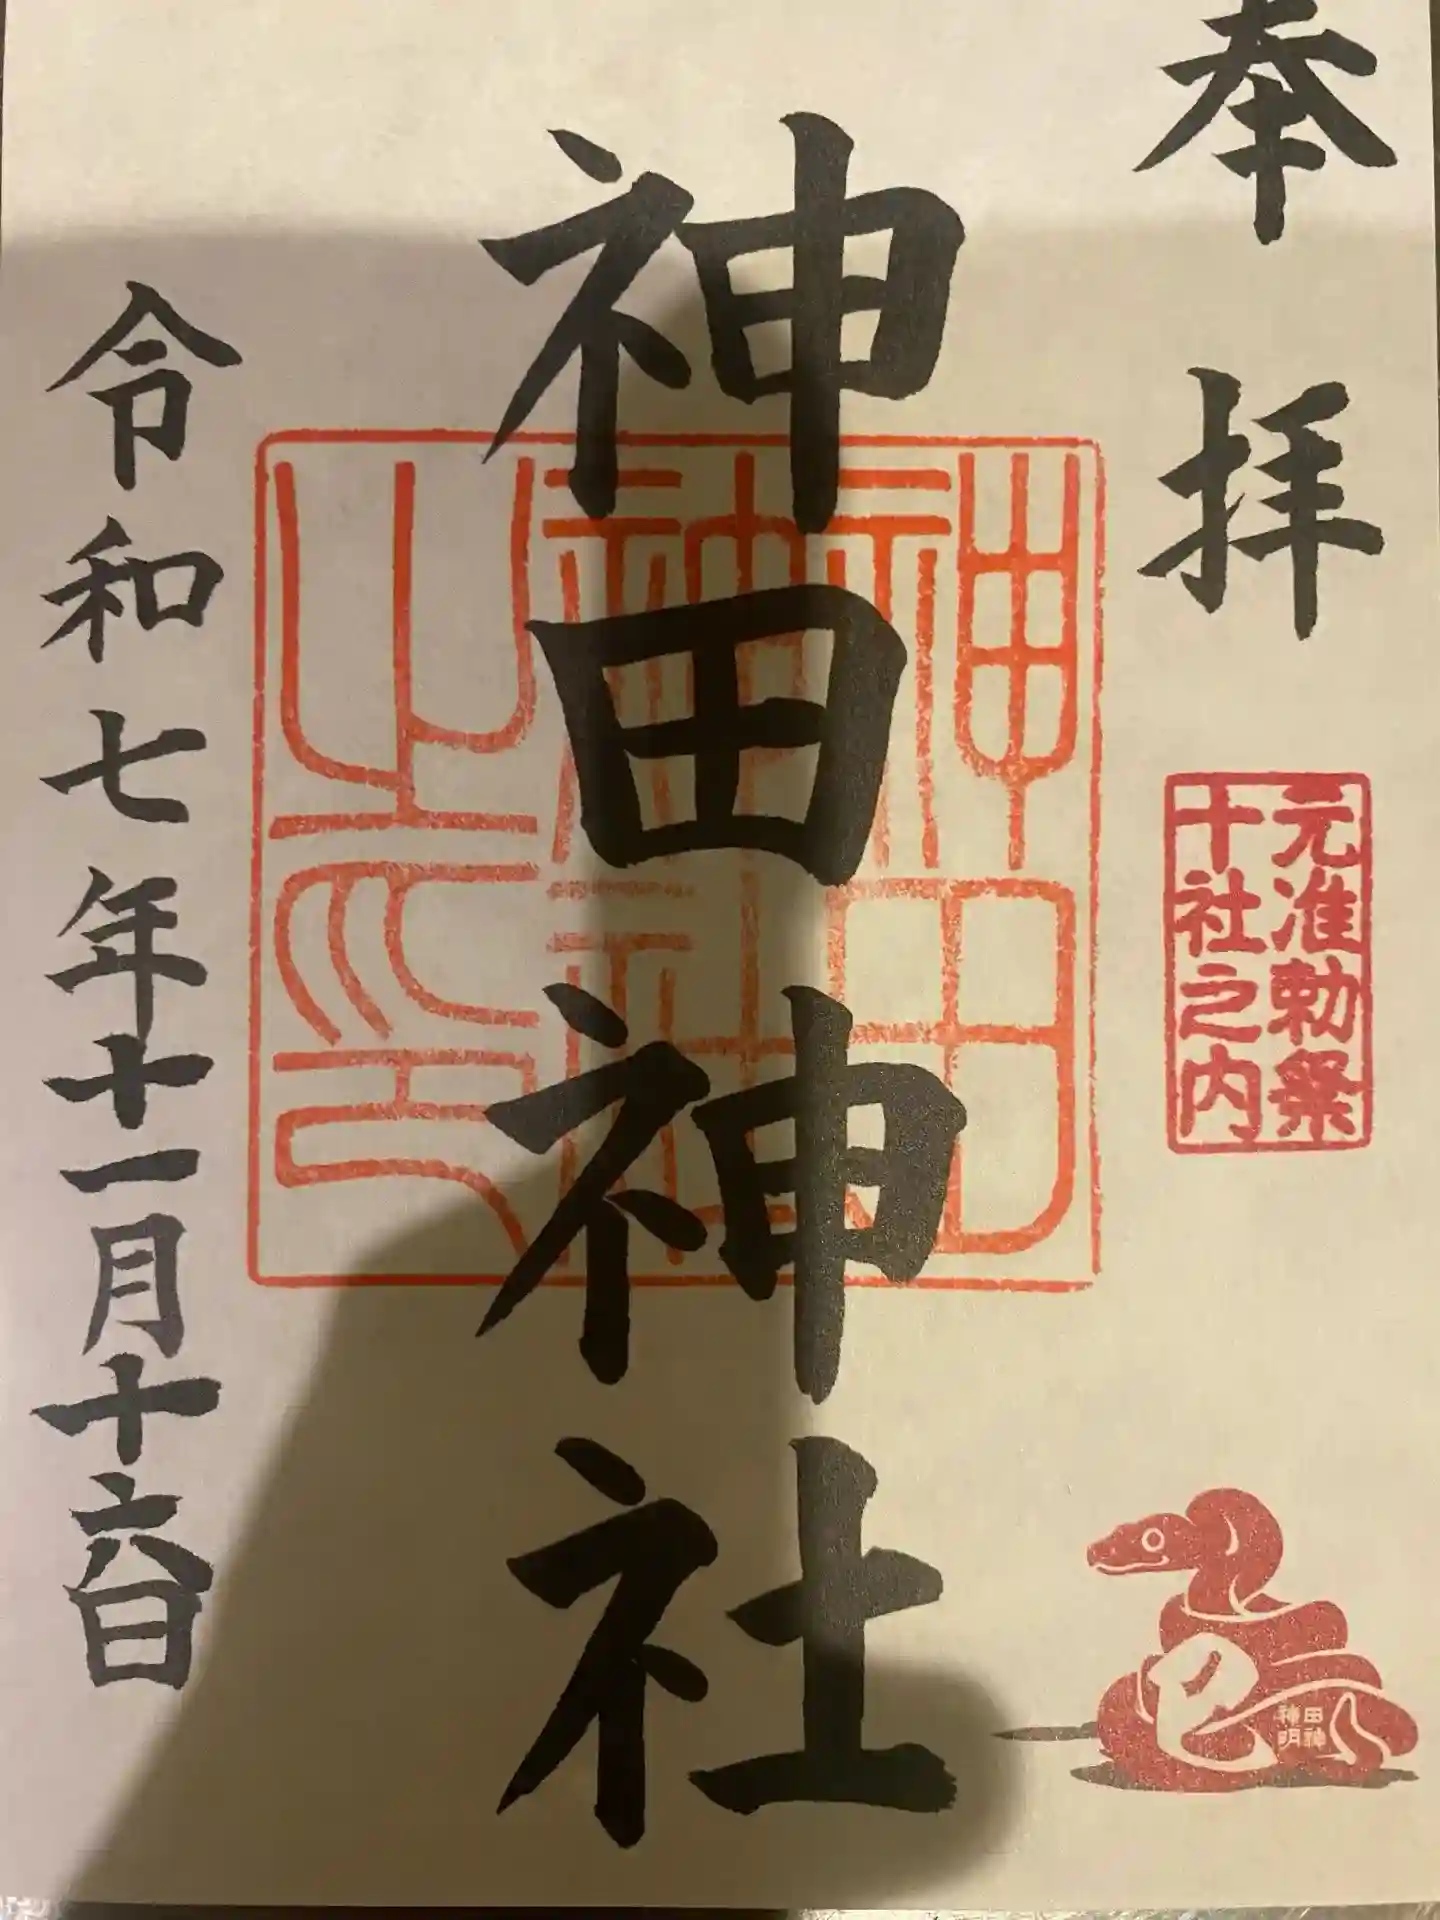 奉拝
元准勅祭
十社之内
巳
田神
神明
神田神社
神田
神社
之印
令和七年十一月十六日